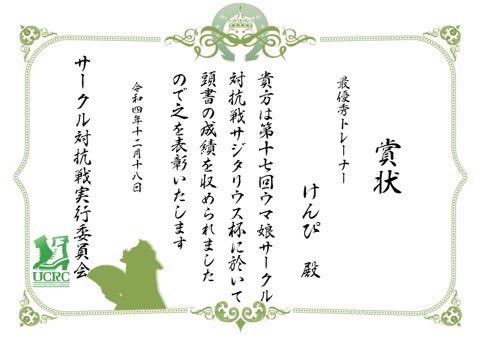 賞状
最優秀トレーナー
けんぴ 殿
貴方は第十七回ウマ娘サークル
対抗戦サジタリウス杯に於いて
頭書の成績を収められました
ので之を表彰いたします
令和四年十二月十八日
サークル対抗戦実行委員会
UCRC